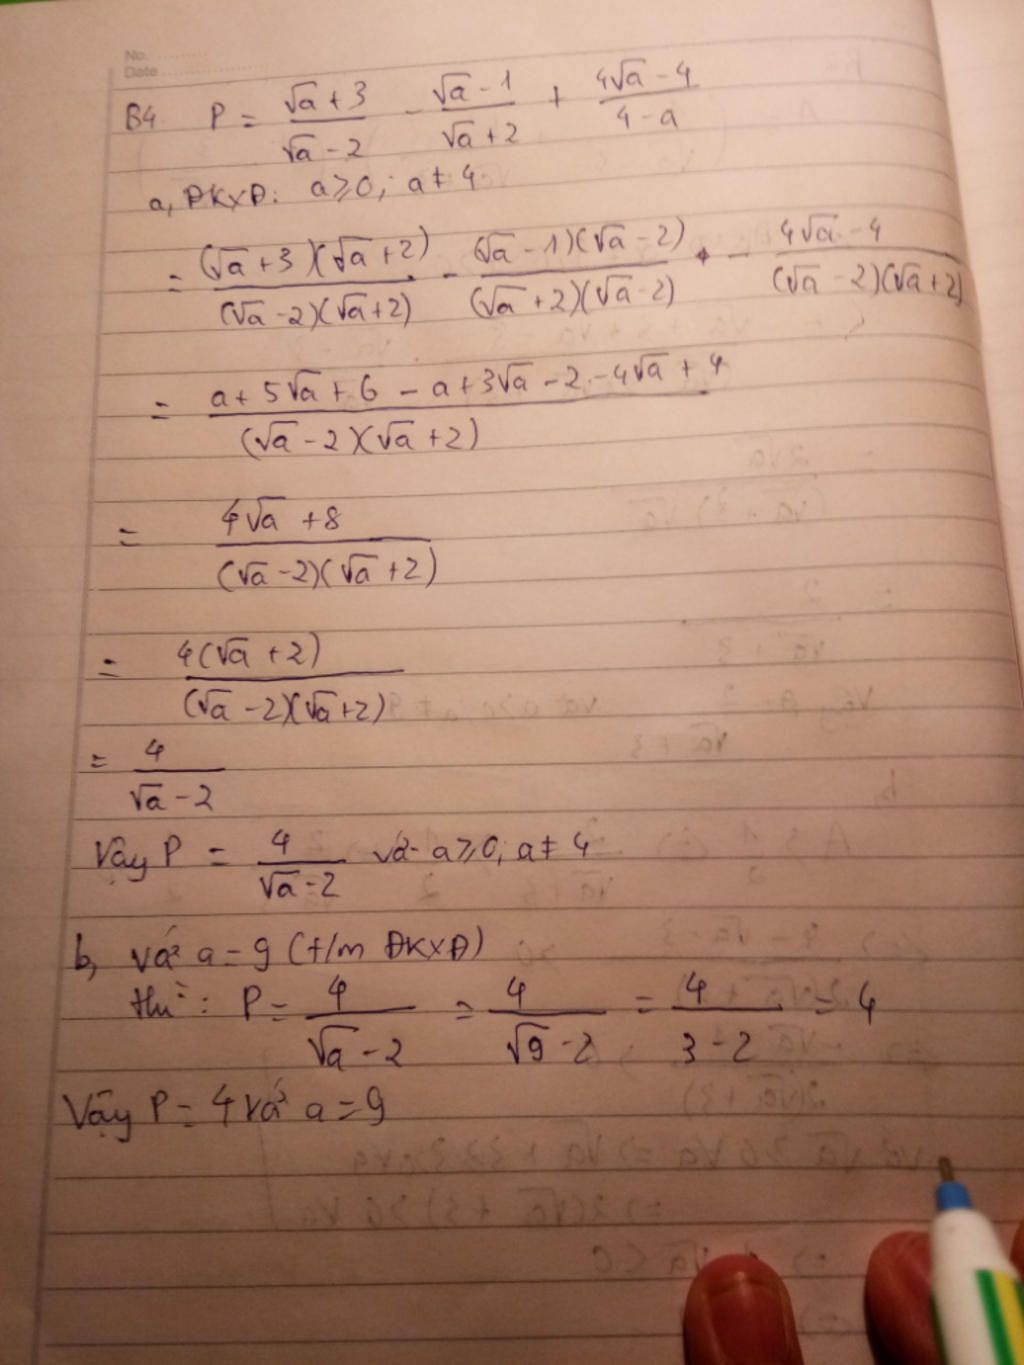 No. ..........
Date ....................
B4. P = (√a + 3)/(√a - 2) - (√a - 1)/(√a + 2) + (4√a - 4)/(4 - a)
a, ĐKXĐ: a ≥ 0; a ≠ 4
= (√a + 3)(√a + 2)/(√a - 2)(√a + 2) - (√a - 1)(√a - 2)/(√a + 2)(√a - 2) - (4√a - 4)/(√a - 2)(√a + 2)
= (a + 5√a + 6 - a + 3√a - 2 - 4√a + 4)/(√a - 2)(√a + 2)
= (4√a + 8)/(√a - 2)(√a + 2)
= 4(√a + 2)/(√a - 2)(√a + 2)
= 4/(√a - 2)
Vậy P = 4/(√a - 2) với a ≥ 0; a ≠ 4
b, với a = 9 (t/m ĐKXĐ)
thì: P = 4/(√a - 2) = 4/(√9 - 2) = 4/(3 - 2) = 4
Vậy P = 4 với a = 9